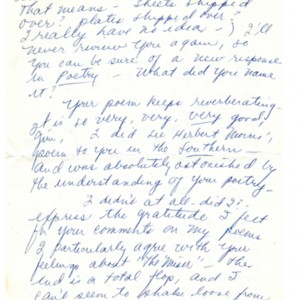 that means - sheets shipped
over? plates shipped over?
I really have no idea -) I'll
never review you again, so
you can be sure of a new response
in Poetry - What did you name
it?
Your poem keeps reverberating-
it is so very, very, very good,
Jim, I did see Herbert Morris'
to you in the Southern -
and was absolutely astonished by
the understanding of your poetry -
I didn't at all - did I? -
express the gratitude I felt
for your comments on my poems
I particularly agree with your
feelings about "The Miser" - the
end is a total flop, and I
can't seem to shake loose from